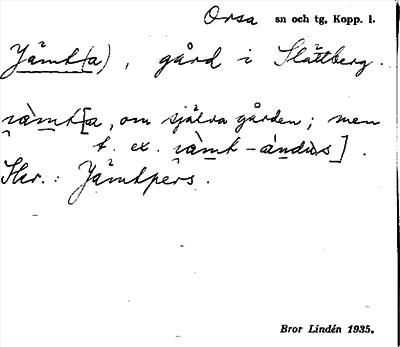 Orsa sn och tg, Kopp. l.
Jämt(a), gård i Slättberg.
i̯àmt[a, om själva gården; men
t. ex. i̯àmt-ándùs].
Skr.: Jämtpers.
Bror Lindén 1935.